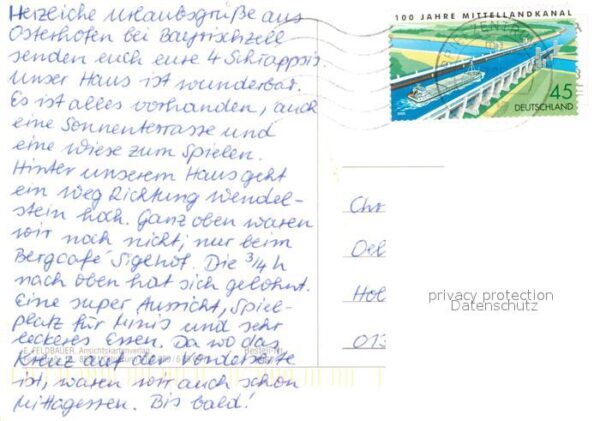 Herzliche Urlaubsgrüße aus
Osterhofen bei Bayrischzell
senden euch eure 4 Schrappsis.
Unser Haus ist wunderbar.
Es ist alles vorhanden, auch
eine Sonnenterrasse und
eine Wiese zum Spielen.
Hinter unserem Haus geht
ein Weg Richtung Wendel-
stein hoch. Ganz oben waren
wir noch nicht, nur beim
Bergcafé Siglhof. Die 3/4 h
nach oben hat sich gelohnt.
Eine super Aussicht, Spiel-
platz für Minis und sehr
leckeres Essen. Da wo das
Kreuz auf der Vorderseite
ist, waren wir auch schon
Mittagessen. Bis bald!
E. FELDBAUER, Ansichtskartenverlag
Bestell-Nr.
100 JAHRE MITTELLANDKANAL
45
DEUTSCHLAND
Chr
Oel
Hol
013
privacy protection
Datenschutz